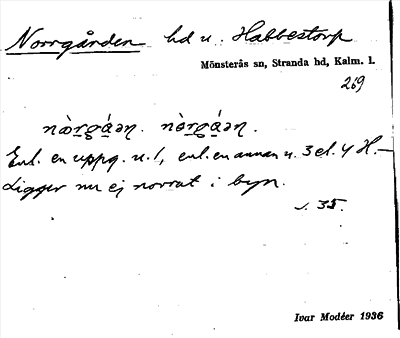 Norrgården hd u. Habbestorp
Mönsterås sn, Stranda hd, Kalm. l.
269
nòrgá̀əɳ. nòrgá̀əɳ.
Enl. en uppg. u. 1, enl. en annan u. 3 el. 4 H. —
Ligger nu ej norrut i byn.
s. 35.
Ivar Modéer 1936